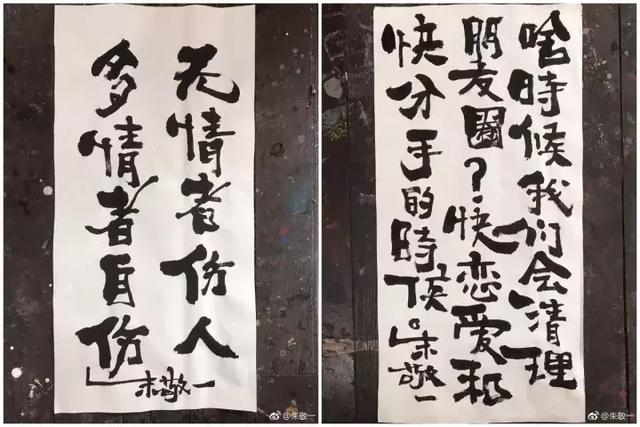 无情者伤人
多情者自伤」
朱敬一
啥時候我们会清理
朋友圈？快恋爱和
快分手的時候。
朱敬一
@朱敬一
@朱敬一